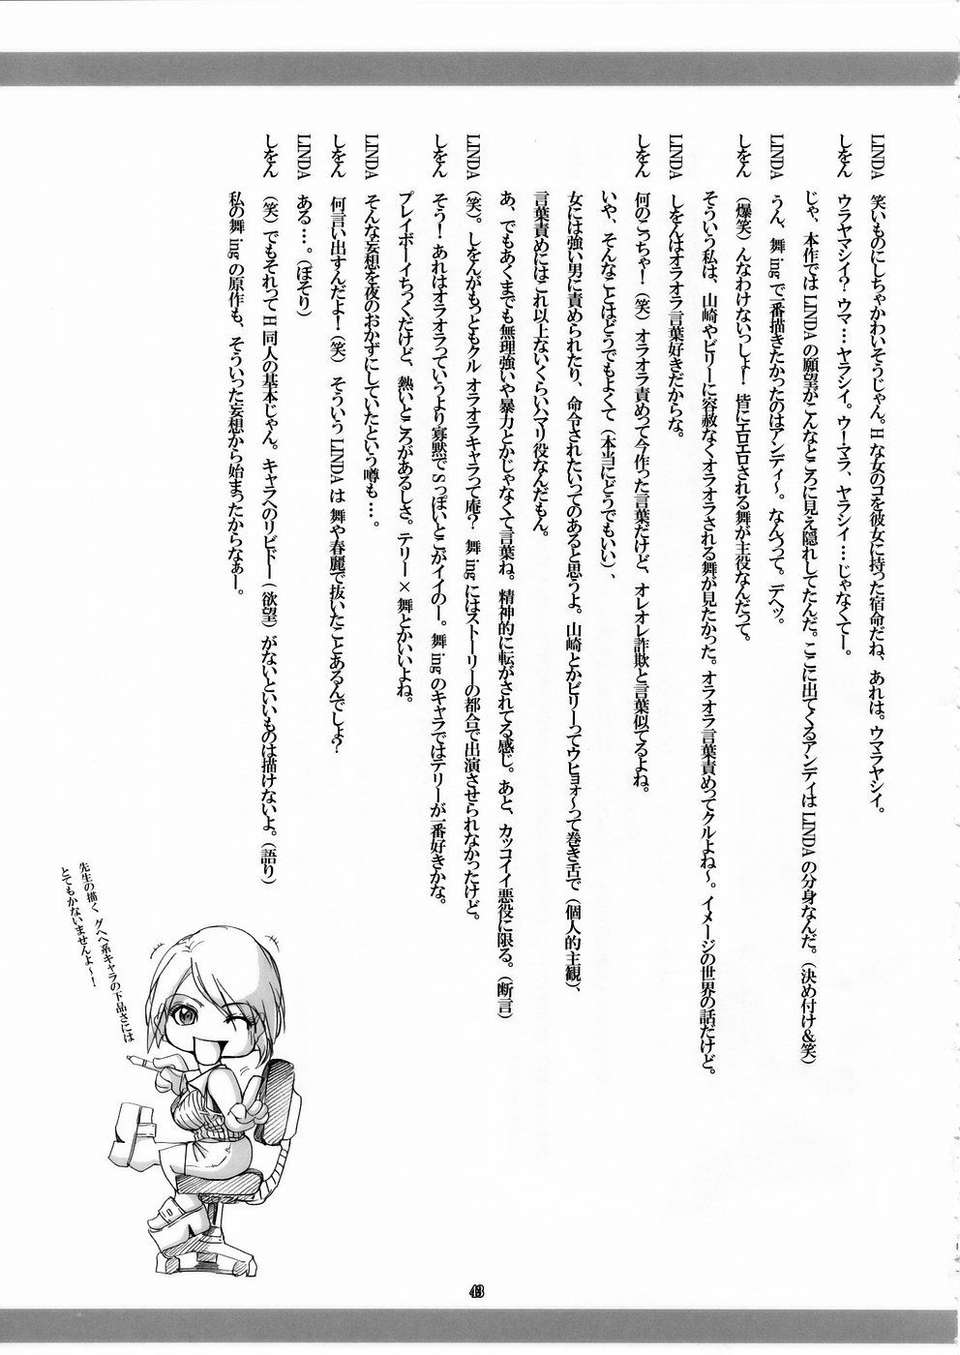 LINDA 笑いものにしちゃかわいそうじゃん。Hな女のコを彼女に持った宿命だね、あれは。ウマラヤシイ。
しをん ウラヤマシイ？ ウマ…ヤラシイ。ウ！マラ、ヤラシイ…じゃなくてー。
じゃ、本作ではLINDAの願望がこんなところに見え隠れしてたんだ。ここに出てくるアンディはLINDAの分身なんだ。（決め付け&笑）
LINDA うん、舞ingで一番描きたかったのはアンディ〜。なんつって。デヘッ。
しをん （爆笑）んなわけないっしょ！ 皆にエロエロされる舞が主役なんだって。
そういう私は、山崎やビリーに容赦なくオラオラされる舞が見たかった。オラオラ言葉責めってクルよね〜。イメージの世界の話だけど。
LINDA しをんはオラオラ言葉好きだからな。
しをん 何のこっちゃ！（笑）オラオラ責めって今作った言葉だけど、オレオレ詐欺と言葉似てるよね。
いや、そんなことはどうでもよくて（本当にどうでもいい）、
女には強い男に責められたり、命令されたいってのあると思うよ。山崎とかビリーってウヒョォ〜って巻き舌で（個人的主観）、
言葉責めにはこれ以上ないくらいハマリ役なんだもん。
あ、でもあくまでも無理強いや暴力とかじゃなくて言葉ね。精神的に転がされてる感じ。あと、カッコイイ悪役に限る。（断言）
LINDA （笑）。しをんがもっともクル オラオラキャラって庵？ 舞ingにはストーリーの都合で出演させられなかったけど。
しをん そう！あれはオラオラっていうより寡黙でSっぽいとこがイイのー。舞ingのキャラではテリーが一番好きかな。
プレイボーイちっくだけど、熱いところがあるしさ。テリー×舞とかいいよね。
LINDA そんな妄想を夜のおかずにしていたという噂も…。
しをん 何言い出すんだよ！（笑） そういうLINDAは舞や春麗で抜いたことあるんでしょ？
LINDA ある…。（ぼそり）
しをん （笑）でもそれってH同人の基本じゃん。キャラへのリビドー（欲望）がないといいものは描けないよ。（語り）
私の舞ingの原作も、そういった妄想から始まったからなぁー。
先生の描く、グヘヘ系キャラの下品さには
とてもかないませんよ〜！
43